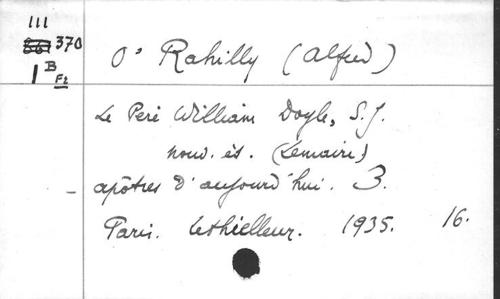 111
370
1 B Fr
O' Rahilly (Alfred)
Le Père William Doyle, S.J.
nouv. éd. (Lemaire)
apôtres d'aujourd'hui. 3.
Paris. Lethielleux. 1935. 16.